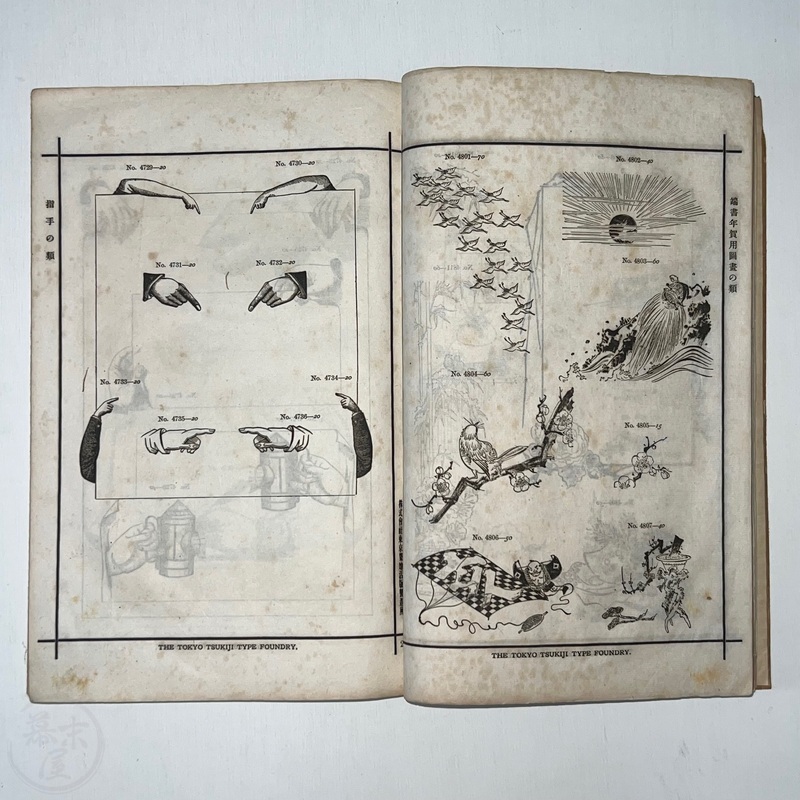 指手の類
No. 4729—20
No. 4730—20
No. 4731—20
No. 4732—20
No. 4733—20
No. 4734—20
No. 4735—20
No. 4736—20
THE TOKYO TSUKIJI TYPE FOUNDRY,
株式會社東京築地活版製造所
端書年賀用圖畫の類
No. 4801—70
No. 4802—40
No. 4803—60
No. 4804—60
No. 4805—15
No. 4806—50
No. 4807—40
THE TOKYO TSUKIJI TYPE FOUNDRY.
幕末屋